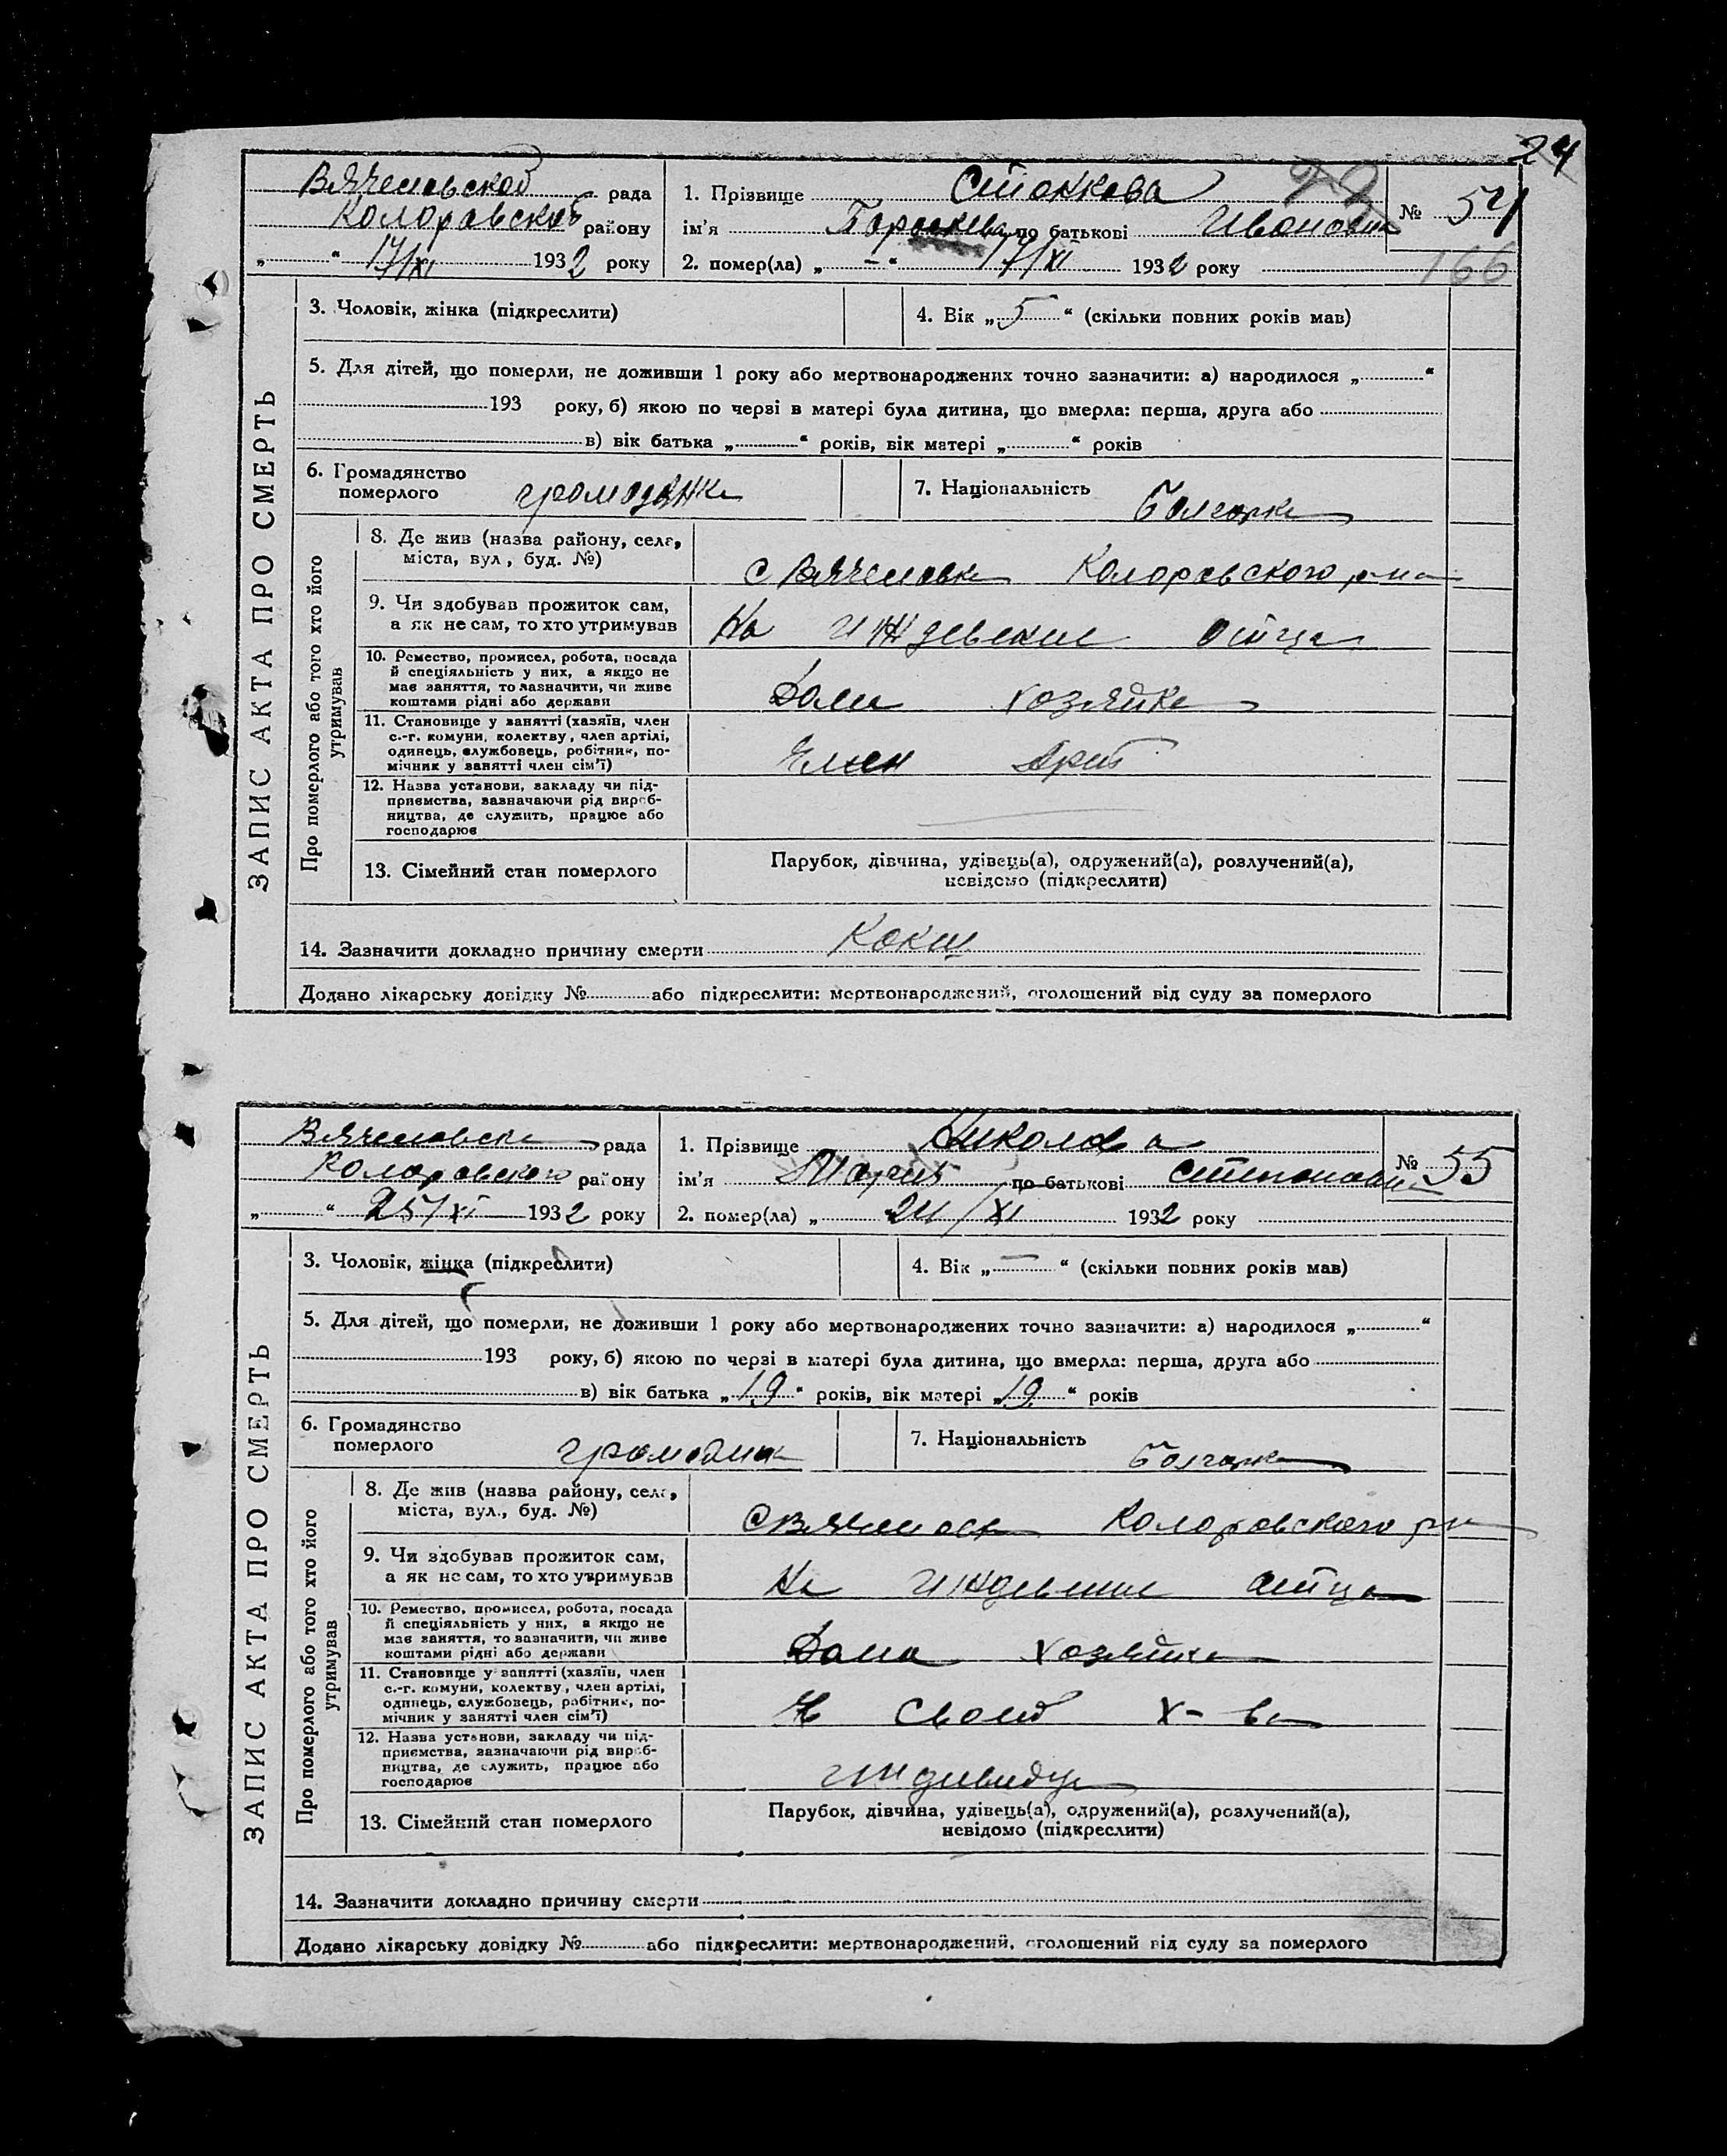 24
Вячеловской рада
Коларовской району
„ “ 17/XI 1932 року
1. Прізвище Стойкова
ім'я Пораскева по батькові Ивановна
№ 54
2. помер(ла) „ - “ 17/XI 1932 року
166
ЗАПИС АКТА ПРО СМЕРТЬ
3. Чоловік, жінка (підкреслити)
4. Вік „ 5 “ (скільки повних років мав)
5. Для дітей, що померли, не доживши 1 року або мертвонароджених точно зазначити: а) народилося „ “
193 року, б) якою по черзі в матері була дитина, що вмерла: перша, друга або
в) вік батька „ “ років, вік матері „ “ років
6. Громадянство
померлого громодянка
7. Національність Болгарка
Про померлого або того хто його
утримував
8. Де жив (назва району, села,
міста, вул., буд. №)
с Вячеловка Коларовского р-на
9. Чи здобував прожиток сам,
а як не сам, то хто утримував
На отца
10. Ремество, промисел, робота, посада
й спеціяльність у них, а якщо не
має заняття, то зазначити, чи живе
коштами рідні або держави
Дома хозяйка
11. Становище у занятті (хазяїн, член
с.-г. комуни, колективу, член артілі,
одинець, службовець, робітник, по-
мічник у занятті член сім'ї)
Член Арт
12. Назва установи, закладу чи під-
приємства, зазначаючи рід вироб-
ництва, де служить, працює або
господарює
13. Сімейний стан померлого
Парубок, дівчина, удівець(а), одружений(а), розлучений(а),
невідомо (підкреслити)
14. Зазначити докладно причину смерти Кокш
Додано лікарську довідку № або підкреслити: мертвонароджений, оголошений від суду за померлого
Вячеловска рада
Коларовского району
„ “ 25/XI 1932 року
1. Прізвище Николова
ім'я Мария по батькові Степановна
№ 55
2. помер(ла) „ 24/XI 1932 року
ЗАПИС АКТА ПРО СМЕРТЬ
3. Чоловік, жінка (підкреслити)
4. Вік „ — “ (скільки повних років мав)
5. Для дітей, що померли, не доживши 1 року або мертвонароджених точно зазначити: а) народилося „ “
193 року, б) якою по черзі в матері була дитина, що вмерла: перша, друга або
в) вік батька „ 19 “ років, вік матері „ 19 “ років
6. Громадянство
померлого
7. Національність Болгарка
Про померлого або того хто його
утримував
8. Де жив (назва району, села,
міста, вул., буд. №)
Коларовского р-н
9. Чи здобував прожиток сам,
а як не сам, то хто утримував
На отца
10. Ремество, промисел, робота, посада
й спеціяльність у них, а якщо не
має заняття, то зазначити, чи живе
коштами рідні або держави
Дома хозяйка
11. Становище у занятті (хазяїн, член
с.-г. комуни, колективу, член артілі,
одинець, службовець, робітник, по-
мічник у занятті член сім'ї)
своей х-ва
12. Назва установи, закладу чи під-
приємства, зазначаючи рід вироб-
ництва, де служить, працює або
господарює
13. Сімейний стан померлого
Парубок, дівчина, удівець(а), одружений(а), розлучений(а),
невідомо (підкреслити)
14. Зазначити докладно причину смерти
Додано лікарську довідку № або підкреслити: мертвонароджений, оголошений від суду за померлого